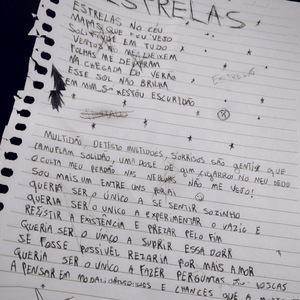 ESTRELAS
ESTRELAS NO CÉU
MAPAS QUE NEU VEJO
SOL QUE EM TUDO
VENTOS ME DEIXEM
FOLHAS ME DEIXARAM
NA CHEGADA DO VERÃO
ESSE SOL NÃO BRILHA
EM MIM, SÓ RESTOU ESCURIDÃO
MULTIDÃO, DETESTO MULTIDÕES, SORRISOS SÃO GENTIS QUE
CAMUFLAM SOLIDÃO, UMA DOSE DE GIM, CIGARRO NO MEU DEDO
OCULTA MEU PERDÃO NAS NEBLINAS NÃO ME VEJO!
SOU MAIS UM ENTRE UNS
QUERIA SER O ÚNICO A SE SENTIR SOZINHO
QUERIA SER O ÚNICO A EXPERIMENTAR O VAZIO E
RESISTIR A EXISTÊNCIA E PREZAR PELO FIM
QUERIA SER O ÚNICO A SUPRIR ESSA DOR
SE FOSSE POSSÍVEL REZARIA POR MAIS AMOR
QUERIA SER O ÚNICO A FAZER PERGUNTAS TOSCAS
A PENSAR EM E CHANCES QUE A